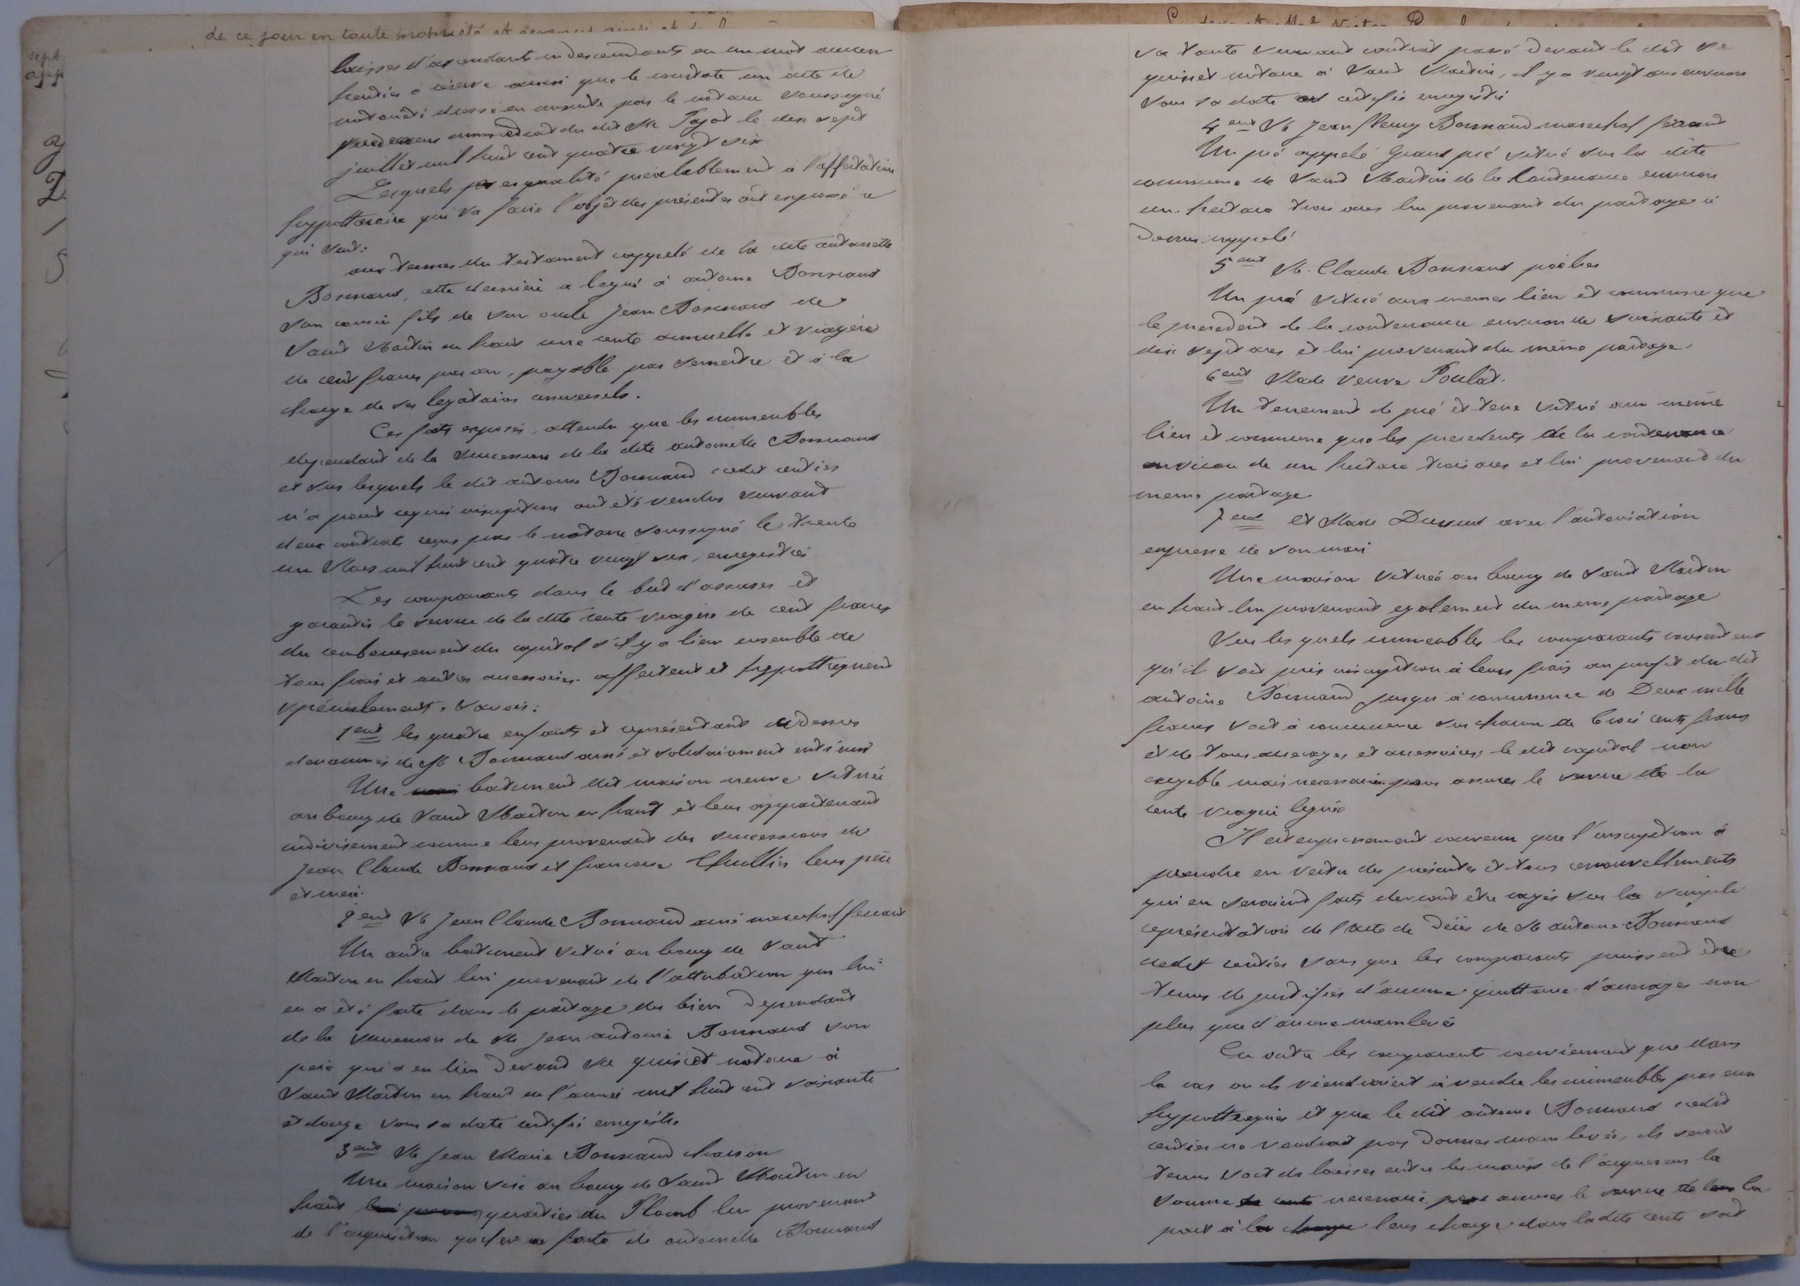 de ce jour en toute propriété et
laissé d'ascendants ni descendants en un mot aucun
héritier à réserve ainsi que le constate un acte de
notoriété dressé en minute par le notaire soussigné
du dit Me Pajot le dix sept
juillet mil huit cent quatre vingt six
Lesquels es qualité préalablement a l'affectation
hypothécaire qui va faire l'objet des présentes ont exposé ce
qui suit:
aux termes du testament rappelé de la dite antoinette
Bonnand, cette dernière a légué à antoine Bonnand
son cousin fils de son oncle Jean Bonnand de
Saint Martin en haut une rente annuelle et viagère
de cent francs par an, payable par semestre et à la
charge de ses légataires universels.
Ces faits exposés, attendu que les immeubles
dépendant de la succession de la dite antoinette Bonnand
et sur lesquels le dit antoine Bonnand credit rentier
n'a point requis inscription ont été vendus suivant
deux contrats reçus par le notaire soussigné le trente
un Mars mil huit cent quatre vingt six, enregistrés
Les comparants dans le but d'assurer et
garantir le service de la dite rente viagère de cent francs
du remboursement du capital s'il y a lieu ensemble de
tous frais et autres accessoires affectent et hypothèquent
spécialement, savoir:
1ent les quatre enfants et représentant ci dessus
dénommés de Mr Bonnand ainé et solidairement entr'eux
Une batiment dit maison neuve située
au bourg de Saint Martin en haut et leur appartenant
indivisément comme leur provenant des successions de
Jean Claude Bonnand et françoise leur père
et mère.
2ent Mr Jean Claude Bonnand ainé maréchal ferrant
Un autre batiment situé au bourg de Saint
Martin en haut lui provenant de l'attribution qui lui
en a été faite dans le partage des biens dépendant
de la succession de Mr Jean antoine Bonnand son
père qui a eu lieu devant Me notaire à
Saint Martin en haut en l'année mil huit cent soixante
et douze sous sa date certifié enregistré
3ent Mr Jean Marie Bonnand
Une maison sise au bourg de Saint Martin en
haut quartier du Plomb lui provenant
de l'acquisition qu'il en a faite de antoinette Bonnand
sa tante suivant contrat passé devant le dit Me
notaire à Saint Martin, il y a vingt ans environ
sous sa date certifié enregistré
4ent Mr Jean Bonnand maréchal ferrant
Un pré appelé Grand pré situé sur la dite
commune de Saint Martin de la contenance environ
un hectare trois ares lui provenant du partage ci
dessus rappelé
5ent Mr Claude Bonnand
Un pré situé aux mêmes lieu et commune que
le précédent de la contenance environ de soixante et
dix sept ares et lui provenant du même partage.
6ent Made veuve Poulat.
Un tenement de pré et terre situé aux même
lieu et commune que les précédents de la contenance
environ de un hectare trois ares et lui provenant du
même partage
7ent et Made avec l'autorisation
expresse de son mari
Une maison située au bourg de Saint Martin
en haut lui provenant également du même partage
Sur les quels immeubles les comparants consentent
qu'il soit pris inscription à leurs frais au profit du dit
antoine Bonnand jusqu'à concurrence de Deux mille
francs soit à concurrence sur chacun de trois cents francs
et de tous arrérages et accessoires, le dit capital non
exigible mais nécessaire pour assurer le service de la
rente viagère léguée
Il est expressément convenu que l'inscription à
prendre en vertu des présentes et tous renouvellements
qui en seraient faits devront être rayés sur la simple
représentation de l'acte de décès de Mr antoine Bonnand
credit rentier sans que les comparants puissent être
tenus de justifier d'aucune quittance d'arrérages non
plus que d'aucune mainlevée
En outre les comparant conviennent que dans
le cas où ils viendraient à vendre les immeubles par eux
hypothéqués et que le dit antoine Bonnand credit
rentier ne voudrait pas donner mainlevée, ils seront
tenus soit de laisser entre les mains de l'acquéreur la
somme nécessaire pour assurer le service de la
part à leur charge dans la dite rente soit